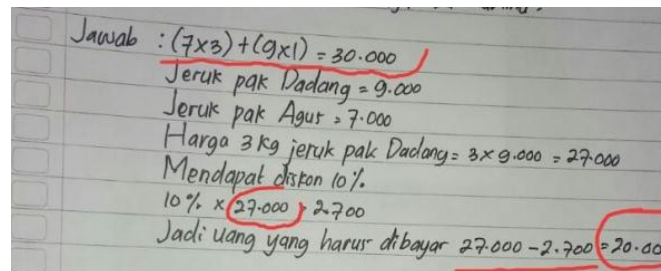 Jawab : (7x3) + (9x1) = 30.000
Jeruk pak Dadang = 9.000
Jeruk pak Agus = 7.000
Harga 3 kg jeruk pak Dadang = 3 x 9.000 = 27.000
Mendapat diskon 10%.
10% x 27.000 = 2.700
Jadi uang yang harus dibayar 27.000 - 2.700 = 20.00